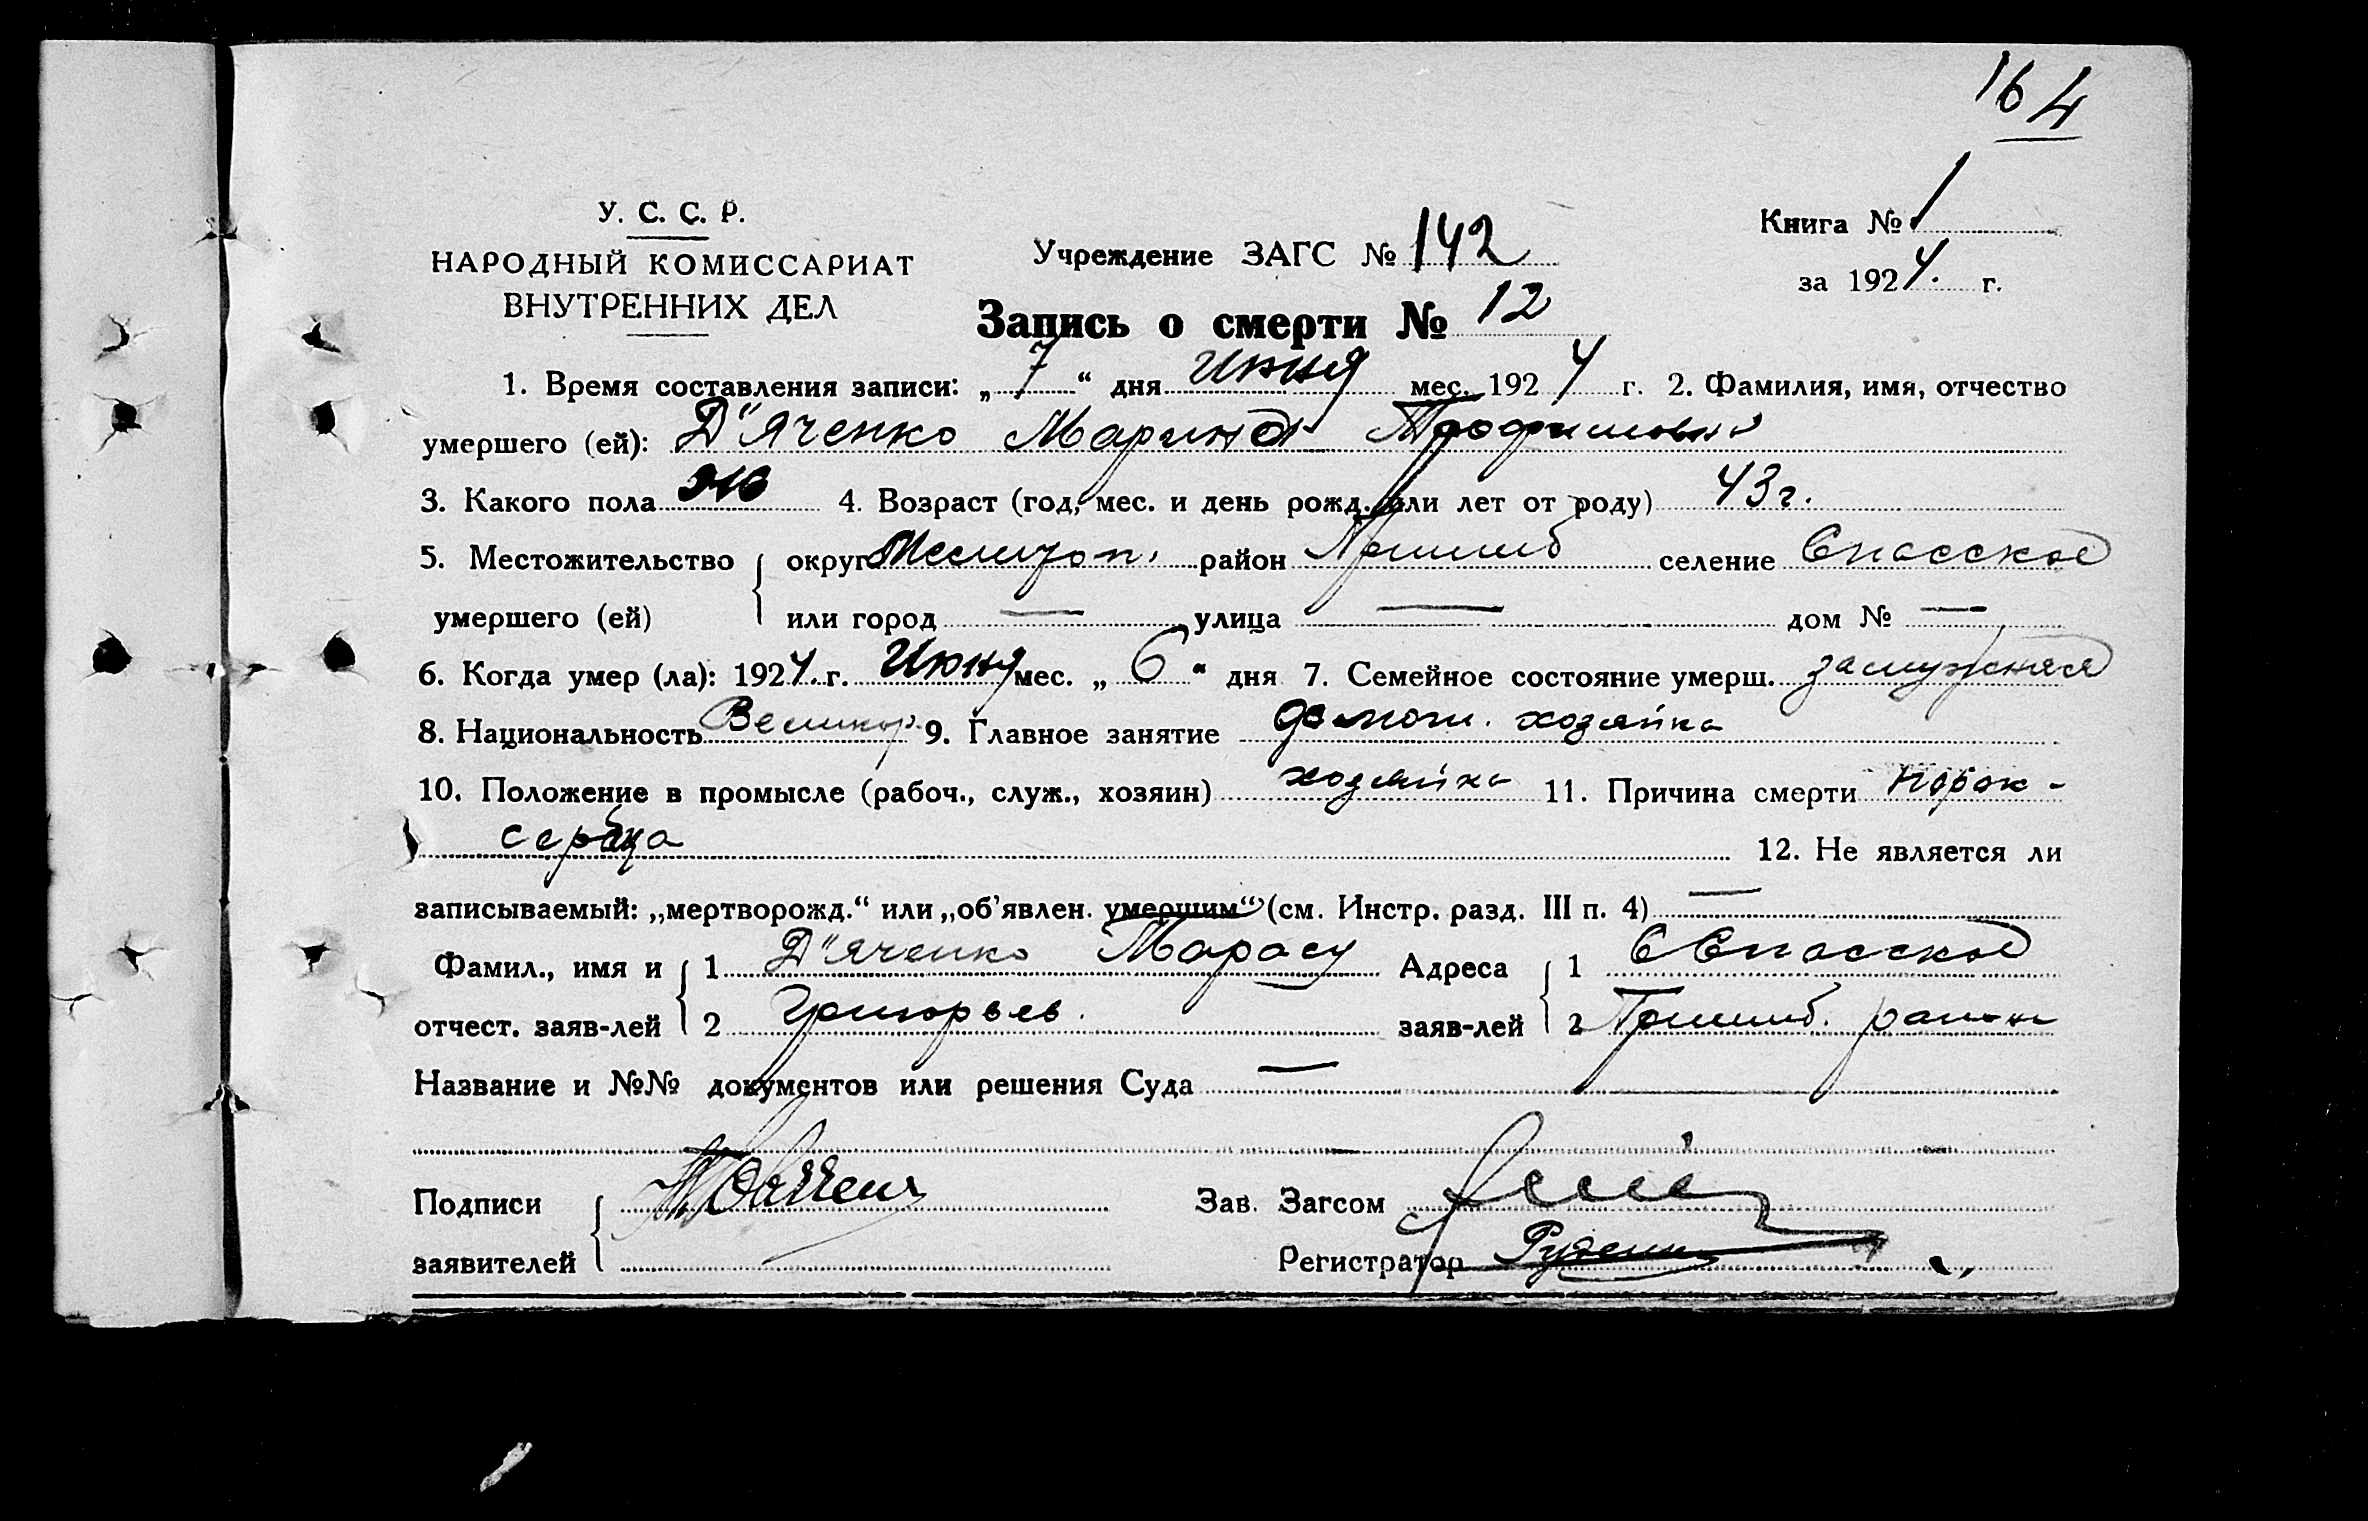 164
У. С. С. Р.
НАРОДНЫЙ КОМИССАРИАТ
ВНУТРЕННИХ ДЕЛ
Учреждение ЗАГС № 142
Книга № 1
за 1924. г.
Запись о смерти № 12
1. Время составления записи: „7“ дня Июня мес. 1924 г. 2. Фамилия, имя, отчество
умершего (ей): Д"Яченко Марина Трофимовна
3. Какого пола жс 4. Возраст (год, мес. и день рожд. или лет от роду) 43 г.
5. Местожительство округ Мелитоп. район Пришиб селение Спасское
умершего (ей) или город — улица — дом № —
6. Когда умер (ла): 1924. г. Июня мес. „6“ дня 7. Семейное состояние умерш. замужняя
8. Национальность Великор. 9. Главное занятие домаш. хозяйка
10. Положение в промысле (рабоч., служ., хозяин) хозяйка 11. Причина смерти порок -
сердца 12. Не является ли
записываемый: „мертворожд.“ или „об'явлен. умершим“ (см. Инстр. разд. III п. 4) —
Фамил., имя и 1 Д"яченко Адреса 1 С Спасское
отчест. заяв-лей 2 Григорьев. заяв-лей 2 Пришиб. района
Название и №№ документов или решения Суда —
Подписи Зав. Загсом
заявителей Регистратор